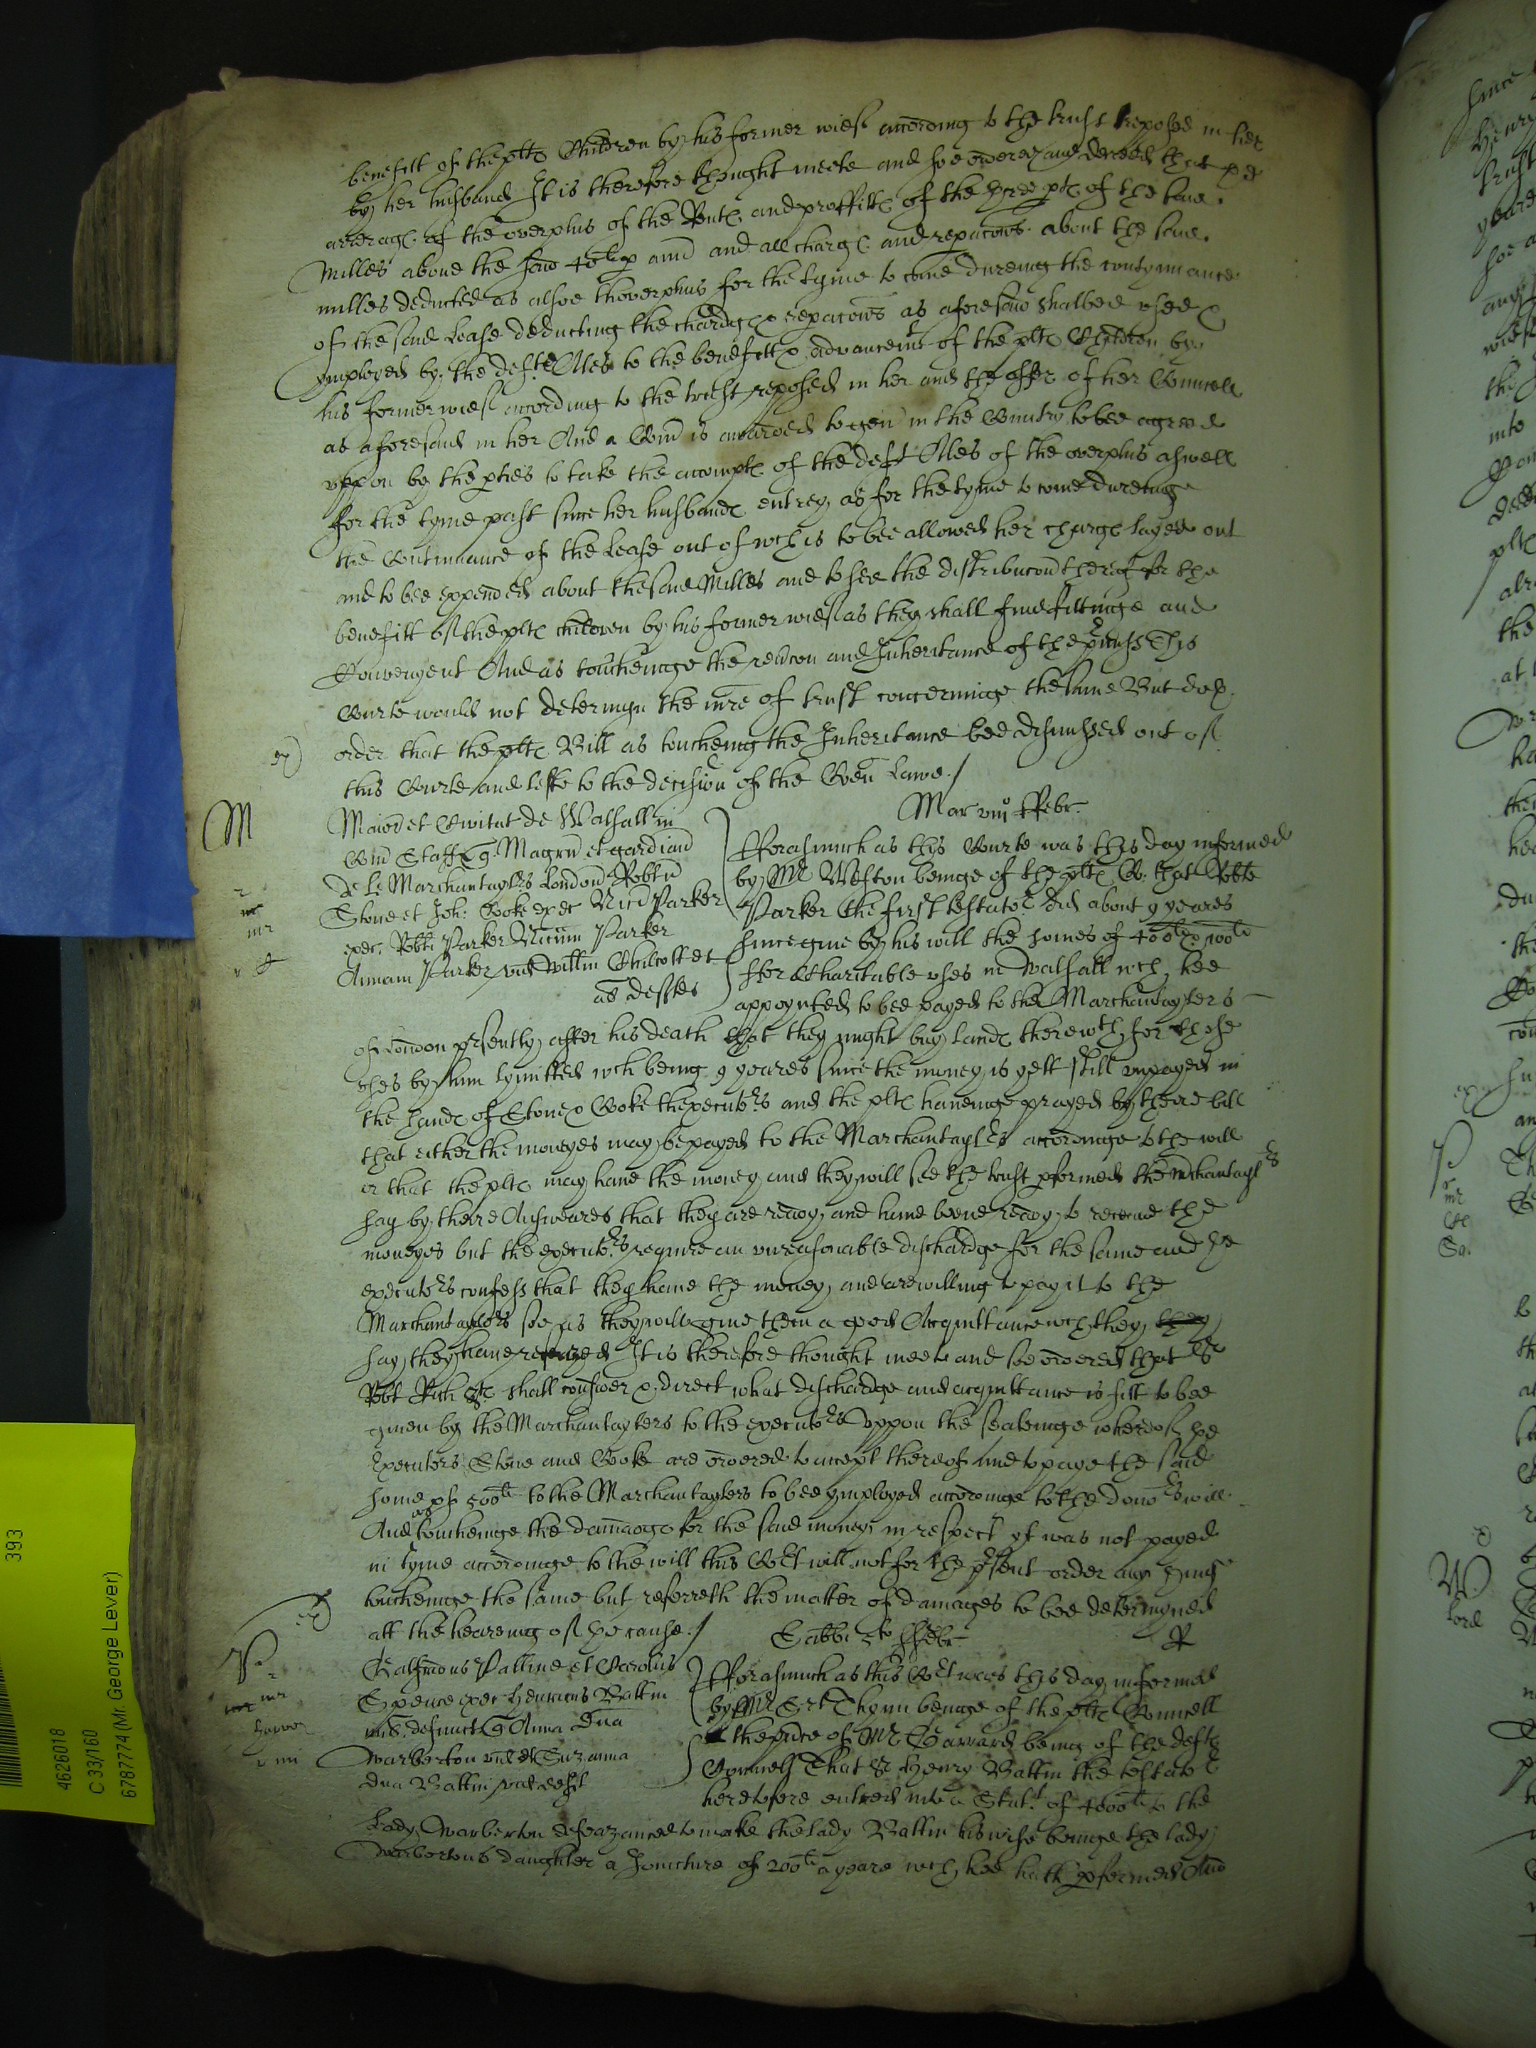 benefitt of the pltes Children by his former wief according to the trust reposed in her
by her husband It is therefore thought meete and soe ordered and decreed that the
arrerages of the overplus of the Rentes and proffittes of the three ptes of the said
Milles above the said 40li p ann and all charges and repacons about the said
milles deducted as alsoe thoverplus for the tyme to come dureing the contynuance
of the said Lease deducting the chardges & repacons as aforesaid shalbee used &
ymployed by the defte Ales to the benefitt & advancemt of the pltes Children by
his former wief according to the trust reposed in her and the offer of her Councell
as aforesaid in her And a Com is awarded to gen in the Country to bee agreed
uppon by the pties to take the accompte of the deft Ales of the overplus aswell
for the tyme past since her husbandes entrey as for the tyme to come dureing
the Contynuance of the Lease out of wch is to bee allowed her charges layed out
and to bee expended about the said Milles and to see the distribucon thereof for the
benefitt of the pltes children by his former wief as they shall finde fittinge and
Convenyent And as toucheinge the revcon and Inheritance of the pmisses This
Courte would not determyn the mre of trust concerninge the same But doth
order that the pltes Bill as toucheing the Inheritance bee dismissed out of
this Courte and lefte to the decision of the Coen Lawe /
M
Maior et Civitat de Walsall in
Com Staff q Magrm et gardian
de le Marchantaylers London Robtm
Stone et Joh: Cooke exec Nich Parker
exec. Robti Parker Nicum Parker
Annam Parker vid Willm Chilcott et
al deftes
Mar viiio Febr
Forasmuch as this Courte was this day informed
by Mr Weston beinge of the pltes C. that Robte
Parker the first testator did about 9 yeares
since give by his will the somes of 400li & 100li
for Charitable uses in Walsall wch hee
appoynted to bee payed to the Marchantaylers
of London psently after his death that they might buy landes therewth for those
uses by him lymitted wch being 9 yeares since the money is yett still unpayed in
the handes of Stone & Cooke thexecutors and the pltes haveinge prayed by there bill
that either the moneyes may be payed to the Marchantaylers accordinge to the will
or that the pltes may have the money and they will see the trust pformed the mchantaylrs
say by there Answeares that they are ready and have beene ready to receive the
moneyes but the executors require an unreasonable dischardge for the same and the
executors confess that they have the money and are willing to pay it to the
Marchantaylers soe as they will give them a good Acquittance wch they they
say they have refused It is therefore thought meete and soe ordered that Sr
Robt Rich shall consider & direct what dischardge and acquittance is fitt to bee
given by the Marchantaylers to the executors uppon the sealeinge whereof the
Executors Stone and Cooke are ordered to accept thereof and to paye the said
some of 500li to the Marchantaylers to bee ymployed accordinge to the donors will
And as toucheinge the damages for the said money in respect yt was not payed
in tyme accordinge to the will this Cort will not for the psent order any thing
toucheinge the same but referreth the matter of damages to bee determyned
att the heareing of the cause /
Sabbi 5to Febr
R
Spence exec Henricus Battin
mil. defunct q Anna Dna
Warberton vid et Suzanna
Dna Battin vid deft
Forasmuch as this Cort was this day informed
by Mr Srt Thynn beinge of the pltes Councell
in the pnce of Mr being of the deftes
Councell That Sr Henry Battin the testator
heretofore entred into a Statt of 4000li to the
Lady Warberton defeazanced to make the lady Battin his wife beinge the lady
Warbertons daughter a Joincture of 200li a yeare wch hee hath pformed And
393
4626018
C 33/160
6787774 (Mr. George Lever)